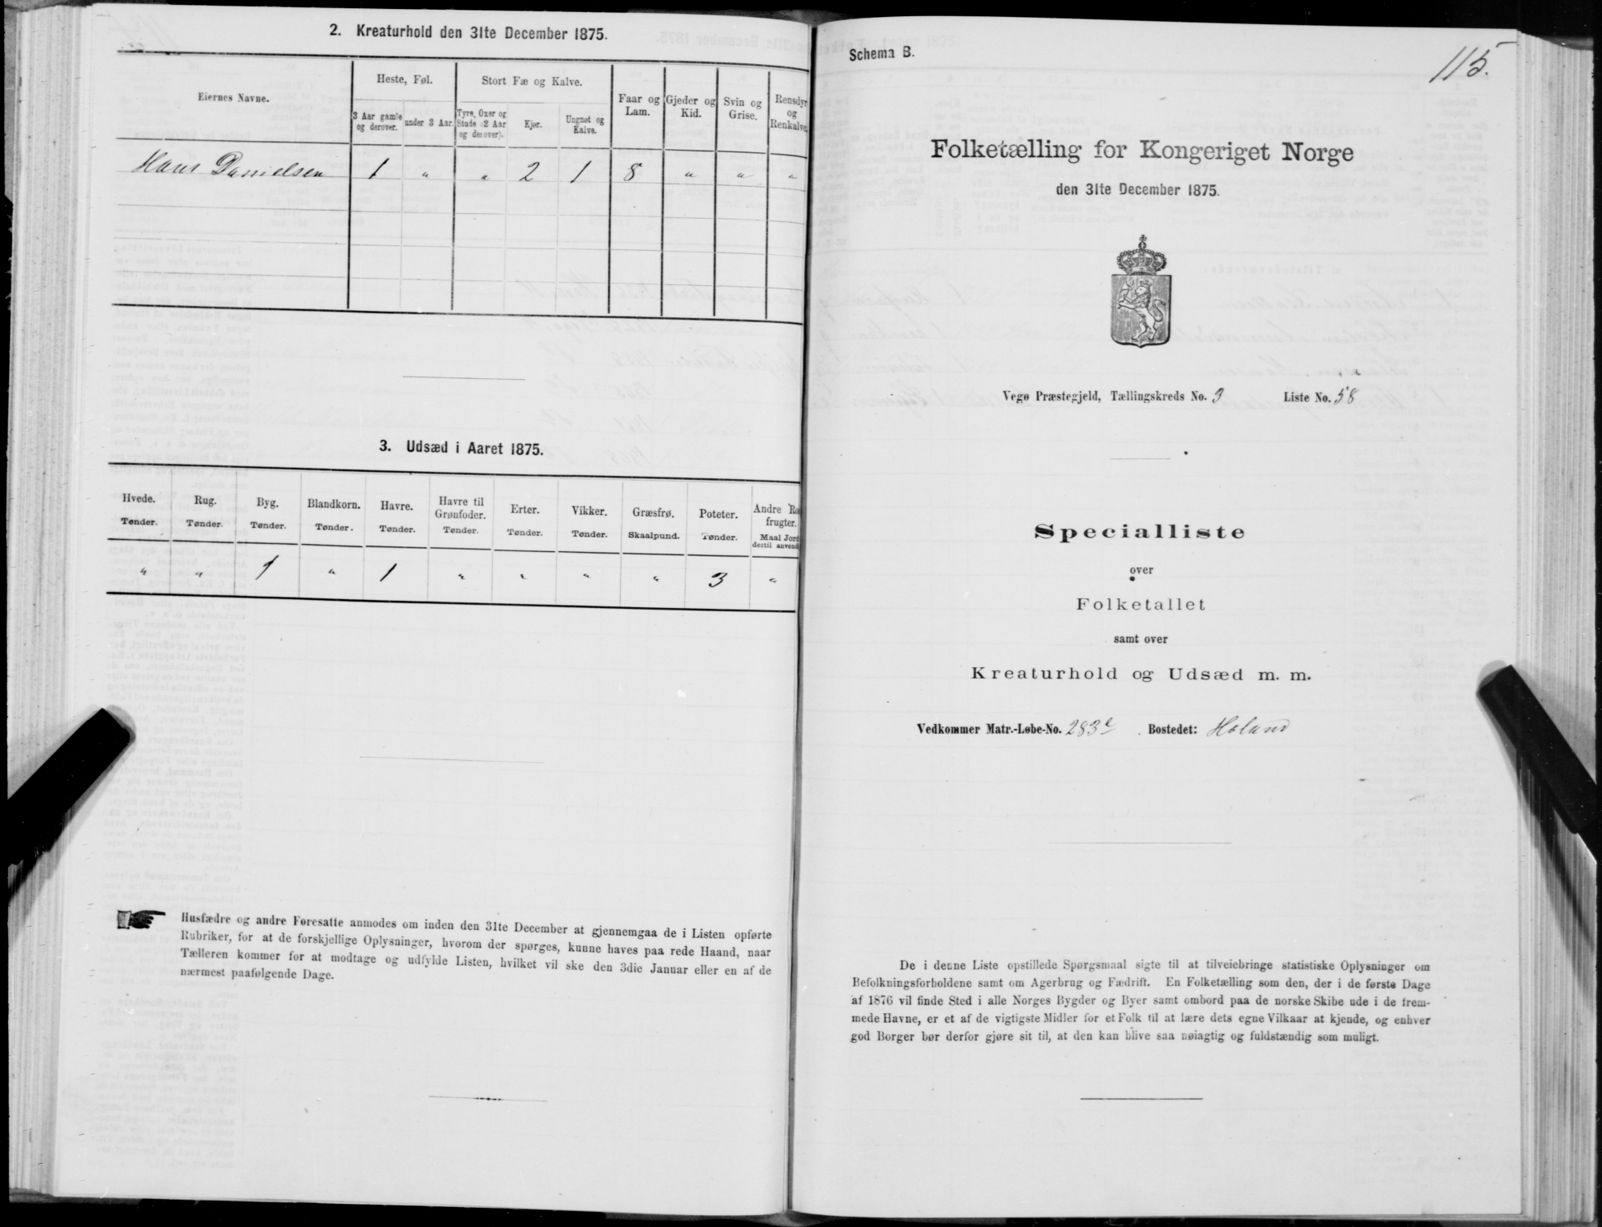 2. Kreaturhold den 31te December 1875.
Eiernes Navne.
Heste, Føl.
Stort Fæ og Kalve.
3 Aar gamle og derover.
under 3 Aar.
Tyre, Oxer og Stude (2 Aar og derover).
Kjør.
Ungnøt og Kalve.
Faar og Lam.
Gjeder og Kid.
Svin og Grise.
Rensdyr og Renkalve.
Hans Danielsen 1 " " 2 1 8 " " "
3. Udsæd i Aaret 1875.
Hvede. Rug. Byg. Blandkorn. Havre. Havre til Grønfoder. Erter. Vikker. Græsfrø. Poteter. Andre
frugter.
Tønder. Tønder. Tønder. Tønder. Tønder. Tønder. Tønder. Tønder. Skaalpund. Tønder. Maal Jord
dertil
" " 1 " 1 " " " " 3 "
Husfædre og andre Foresatte anmodes om inden den 31te December at gjennemgaa de i Listen opførte
Rubriker, for at de forskjellige Oplysninger, hvorom der spørges, kunne haves paa rede Haand, naar
Tælleren kommer for at modtage og udfylde Listen, hvilket vil ske den 3die Januar eller en af de
nærmest paafølgende Dage.
Schema B.
115.
Folketælling for Kongeriget Norge
den 31te December 1875.
Vegø Præstegjeld, Tællingskreds No. 3 Liste No. 58
Specialliste
over
Folketallet
samt over
Kreaturhold og Udsæd m. m.
Vedkommer Matr.-Løbe-No. 283e . Bostedet: Holand
De i denne Liste opstillede Spørgsmaal sigte til at tilveiebringe statistiske Oplysninger om
Befolkningsforholdene samt om Agerbrug og Fædrift. En Folketælling som den, der i de første Dage
af 1876 vil finde Sted i alle Norges Bygder og Byer samt ombord paa de norske Skibe ude i de frem-
mede Havne, er et af de vigtigste Midler for et Folk til at lære dets egne Vilkaar at kjende, og enhver
god Borger bør derfor gjøre sit til, at den kan blive saa nøiagtig og fuldstændig som muligt.